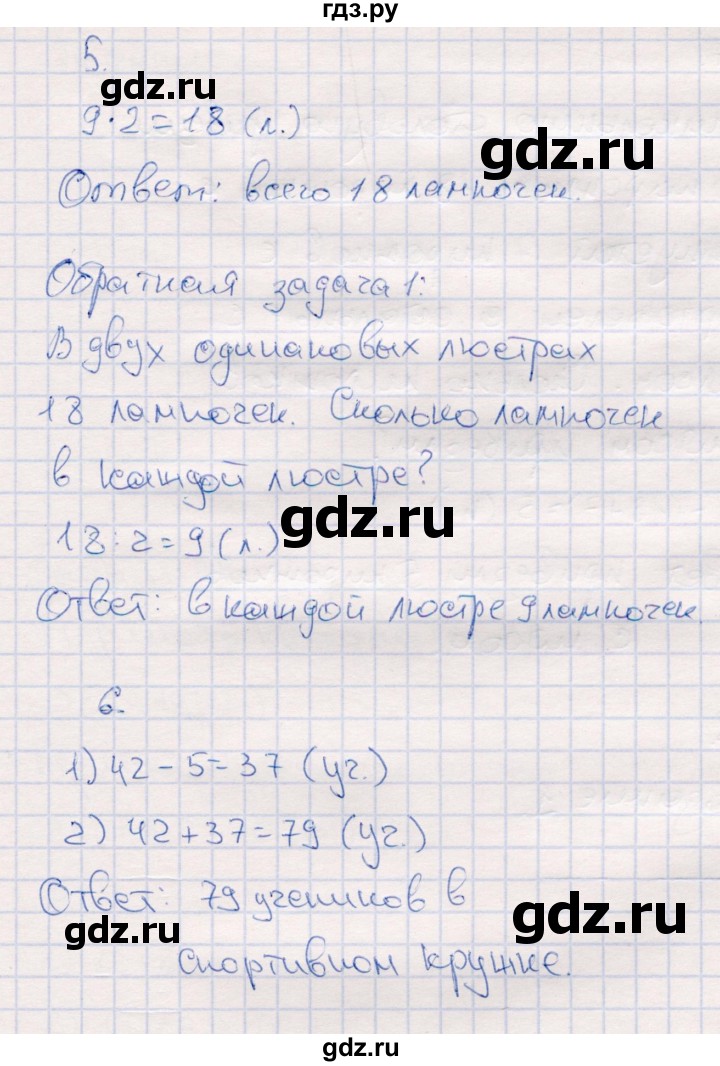 гдз.ру
5.
gdz.ru
9·2=18 (л.)
gdz.ru
Ответ: всего 18 лампочек.
Обратная задача 1:
В двух одинаковых люстрах
18 лампочек. Сколько лампочек
в каждой люстре?
gdz.ru
18:2=9 (л.)
Ответ: в каждой люстре 9 лампочек.
6.
1) 42-5=37 (уч.)
2) 42+37=79 (уч.)
Ответ: 79 учеников в
gdz.ru
gdz.ru
спортивном кружке.
gdz.ru